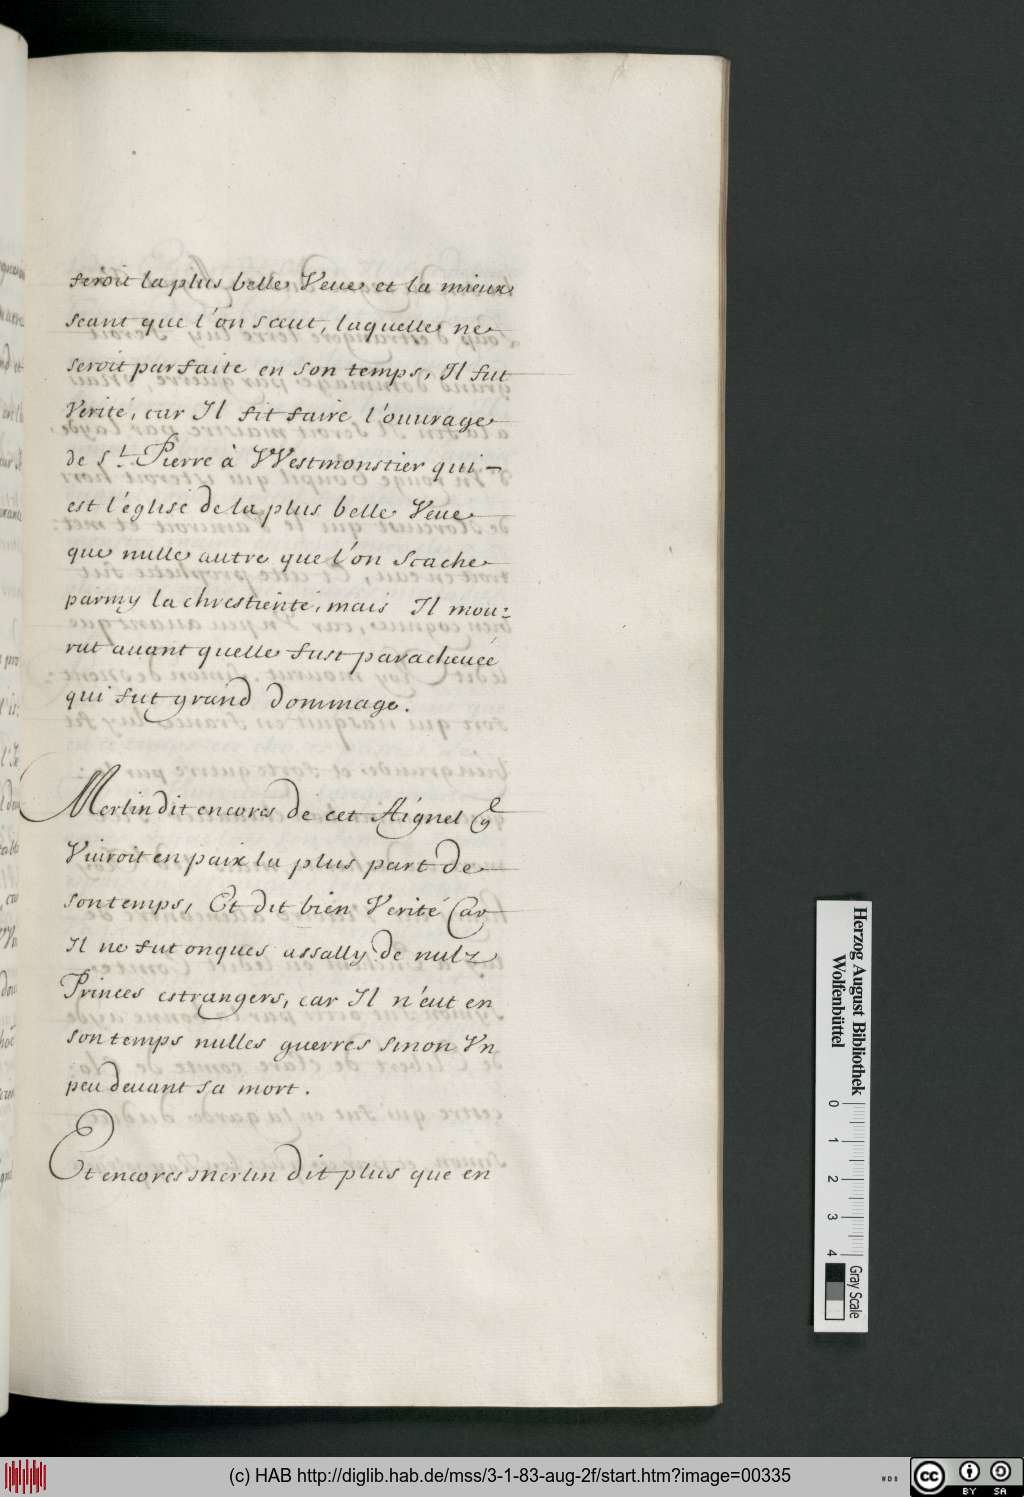 seroit la plus belle Veue et la mieux
seant que l'on sceut, laquelle ne
seroit parfaite en son temps, Il fut
Verité, car Il fit faire l'ouurage
de St. Pierre à VVestmonstier qui –
est l'église de la plus belle Veue
que nulle autre que l'on scache
parmy la chrestienté, mais Il mou:
rut auant quelle fust paracheueé
qui fut grand dommage.
Merlin dit encores de cet Aignel q
Viuroit en paix la plus part de
son temps, Et dit bien Verité Car
Il ne fut onques assally de nulz
Princes estrangers, car Il n'eut en
son temps nulles guerres sinon Vn
peu deuant sa mort.
Et encores merlin dit plus que en
Herzog August Bibliothek
Wolfenbüttel
0 1 2 3 4
Gray Scale
(c) HAB http://diglib.hab.de/mss/3-1-83-aug-2f/start.htm?image=00335
WDB
cc BY SA